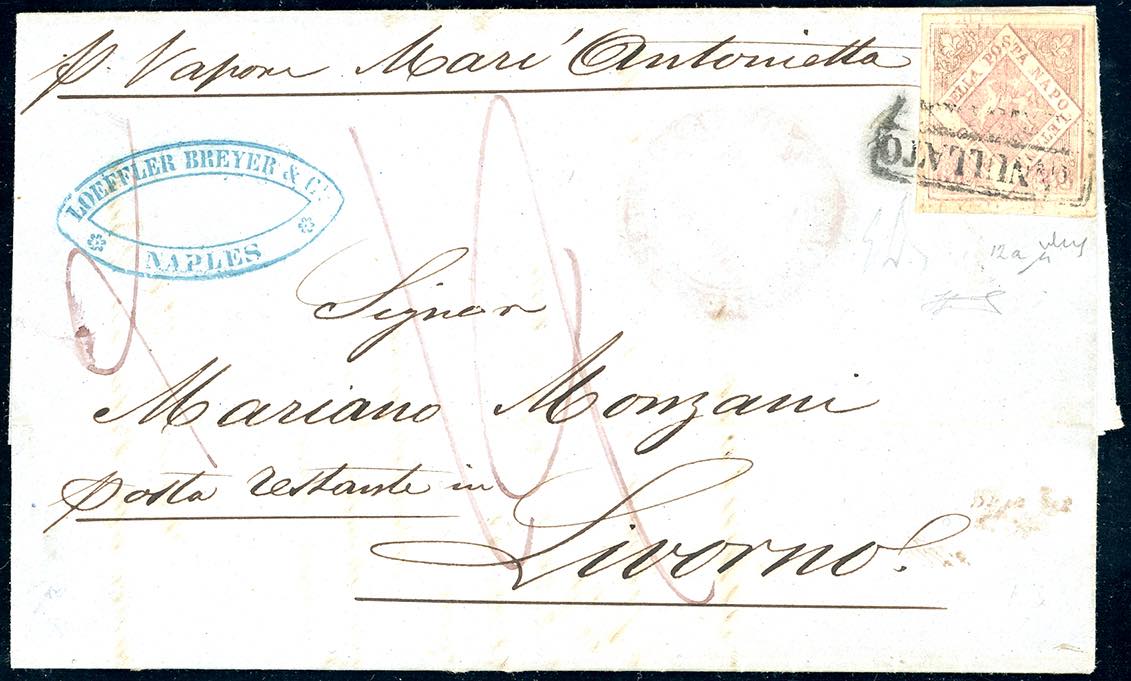 p. Vapore Mari' Antonietta
ELLA POSTA NAPO LET
ANNULLATO
LOEFFLER BREYER & Cie
NAPLES
Signor
Mariano Monzani
posta restante in
Livorno.
12a